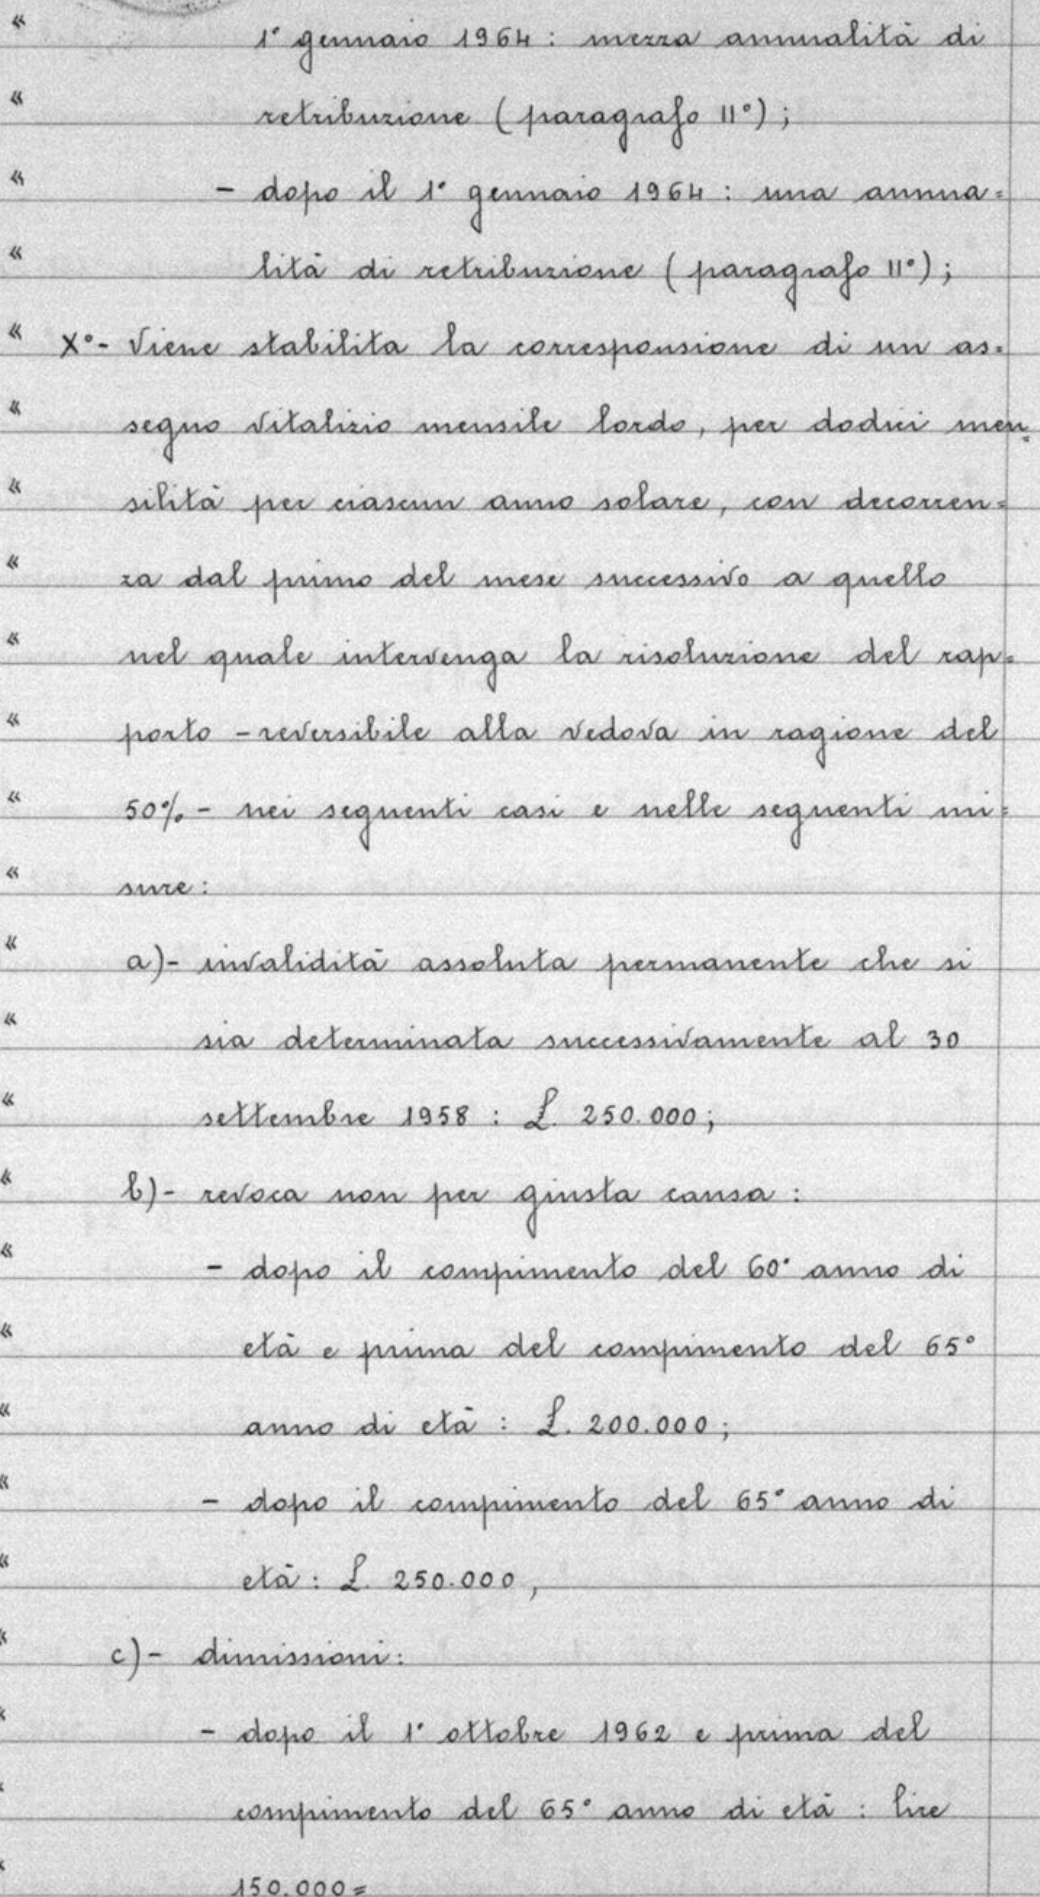 « 1° gennaio 1964: mezza annualità di
« retribuzione (paragrafo II°);
« - dopo il 1° gennaio 1964: una annua=
« lità di retribuzione (paragrafo II°);
« X°- Viene stabilita la corresponsione di un as=
« segno vitalizio mensile lordo, per dodici men=
« silità per ciascun anno solare, con decorren=
« za dal primo del mese successivo a quello
« nel quale intervenga la risoluzione del rap=
« porto - reversibile alla vedova in ragione del
« 50% - nei seguenti casi e nelle seguenti mi=
« sure:
« a)- invalidità assoluta permanente che si
« sia determinata successivamente al 30
« settembre 1958: £. 250.000;
« b)- revoca non per giusta causa:
« - dopo il compimento del 60° anno di
« età e prima del compimento del 65°
« anno di età: £. 200.000;
« - dopo il compimento del 65° anno di
« età: £. 250.000,
« c)- dimissioni:
« - dopo il 1° ottobre 1962 e prima del
« compimento del 65° anno di età: lire
« 150.000=